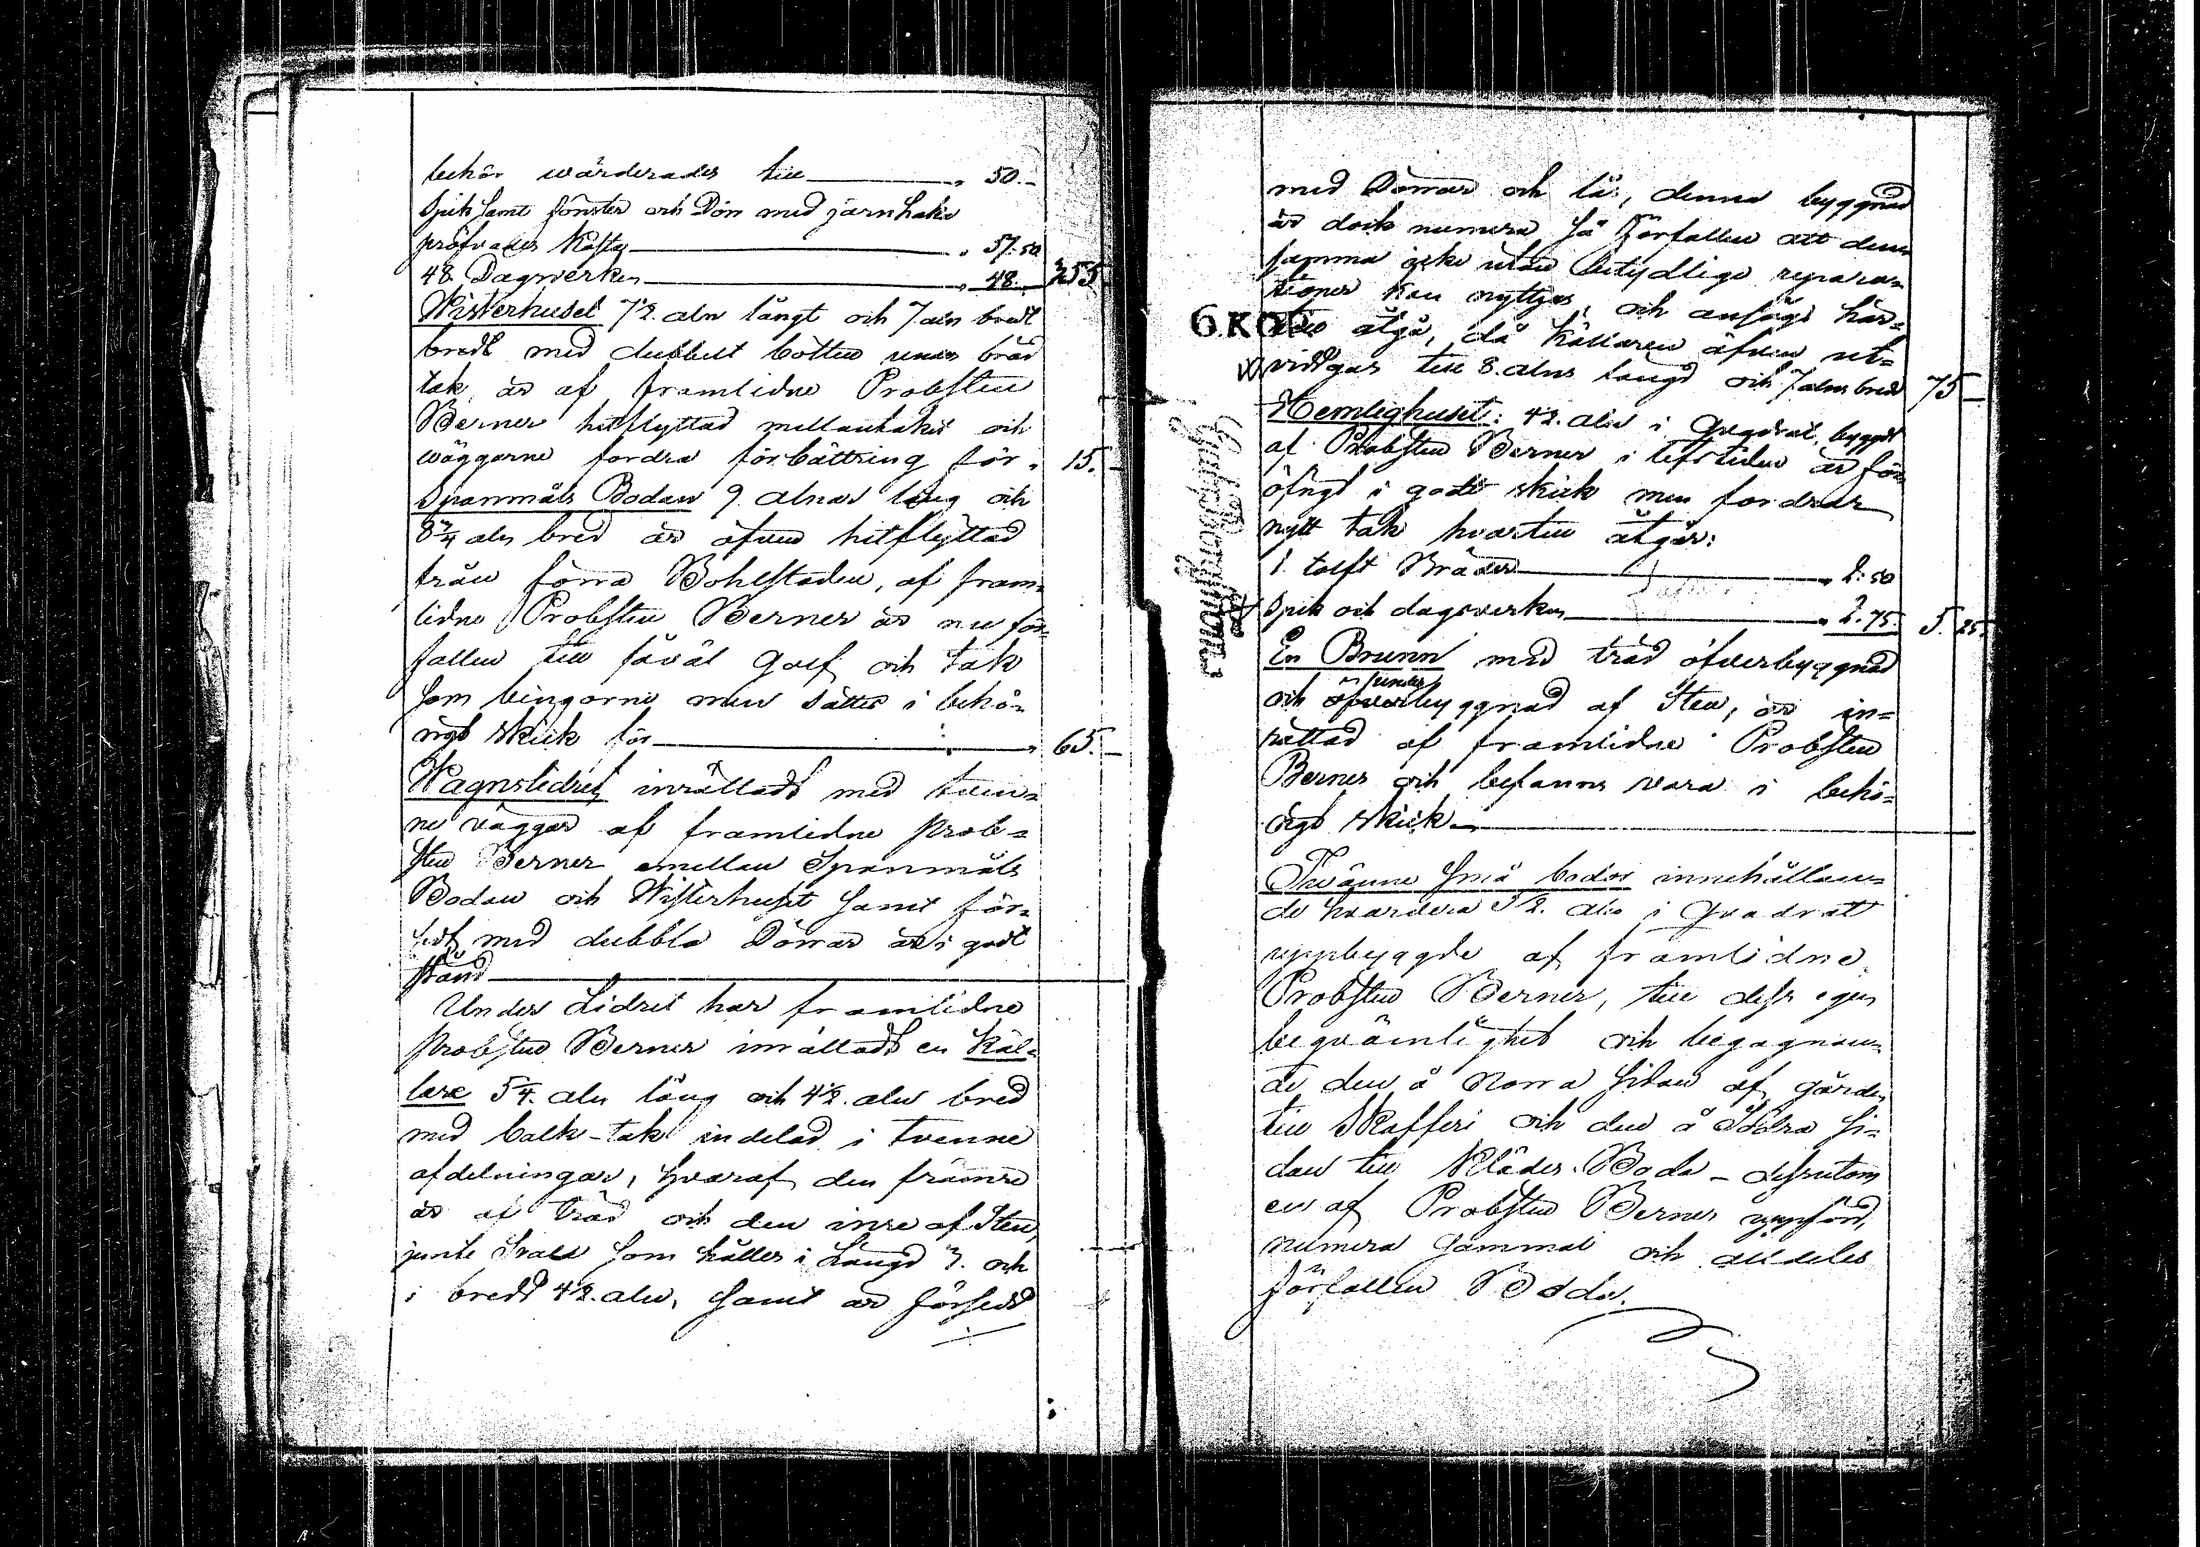 behör wärderades till — " 50.-
Spik samt fönster och Dörr med järnhakar
pröfvades Kosta — " 57.50
48 Dagwerken — " 48.- 255
Wisterhuset 7½ aln långt och 7 aln bredt
bredt med dubbelt botten under bräd
tak, är af framlidne Probsten
Berner hitflyttad mellantaket och
wäggarne fordra förbättring för " 15.-
Spanmåls Bodan 9 alnar lång och
8¾ aln bred är äfven hitflyttad
från förra Bohlstaden, af fram-
lidne Probsten Berner är nu för-
fallen till såväl Golf och tak
som bingarne men sättes i behö-
rigt skick för — " 65.-
Wagnslidret inrättadt med tven-
ne väggar af framlidne Prob-
sten Berner emellan Spanmåls
Bodan och Wisterhuset samt för-
sedt med dubbla Dörrar är i godt
stånd —
Under Lidret har framlidne
Probsten Berner inrättadt en Käl-
lare 5¼ aln lång och 4½ aln bred
med balk-tak indelad i tvenne
afdelningar, hvaraf den främre
är af träd och den inre af Sten,
jemte Svale som håller i längd 3. och
i bredd 4½ aln, samt är försedt
med Dörrar och lås, denna byggnad
är dock numera så förfallen att den-
samma icke utan betydlige repara-
tioner kan nyttjas, och ansågs här-
till åtgå, då Källaren äfven ut-
vidgas till 8 alns längd och 7 alns bredd 75 -
Hemlighuset: 4½ aln i Qvadrat, byggdt
af Probsten Berner i lifstiden är för
öfrigt i godt skick men fordrar
nytt tak hvartill åtgår:
1 tolft Bräder — " 2.50
Spik och dagsverken — " 2.75. 5. 25.
En Brunn med träd öfverbyggnad
under
och öfverbyggnad af Sten, är in-
rättad af framlidne Probsten
Berner och befanns vara i behö-
rigt skick —
Tvänne små bodar innehållan-
de hvardera 5½ aln i Qvadratt
uppbyggde af framlidne
Probsten Berner, till dess egen
beqvämlighet och begagnan-
de den å Norra sidan af gården
till Skafferi och den å Södra si-
dan till Kläder. Boda - dessutom
en af Probsten Berner uppförd,
numera gammal och alldeles
förfallen Boda.
6.KO